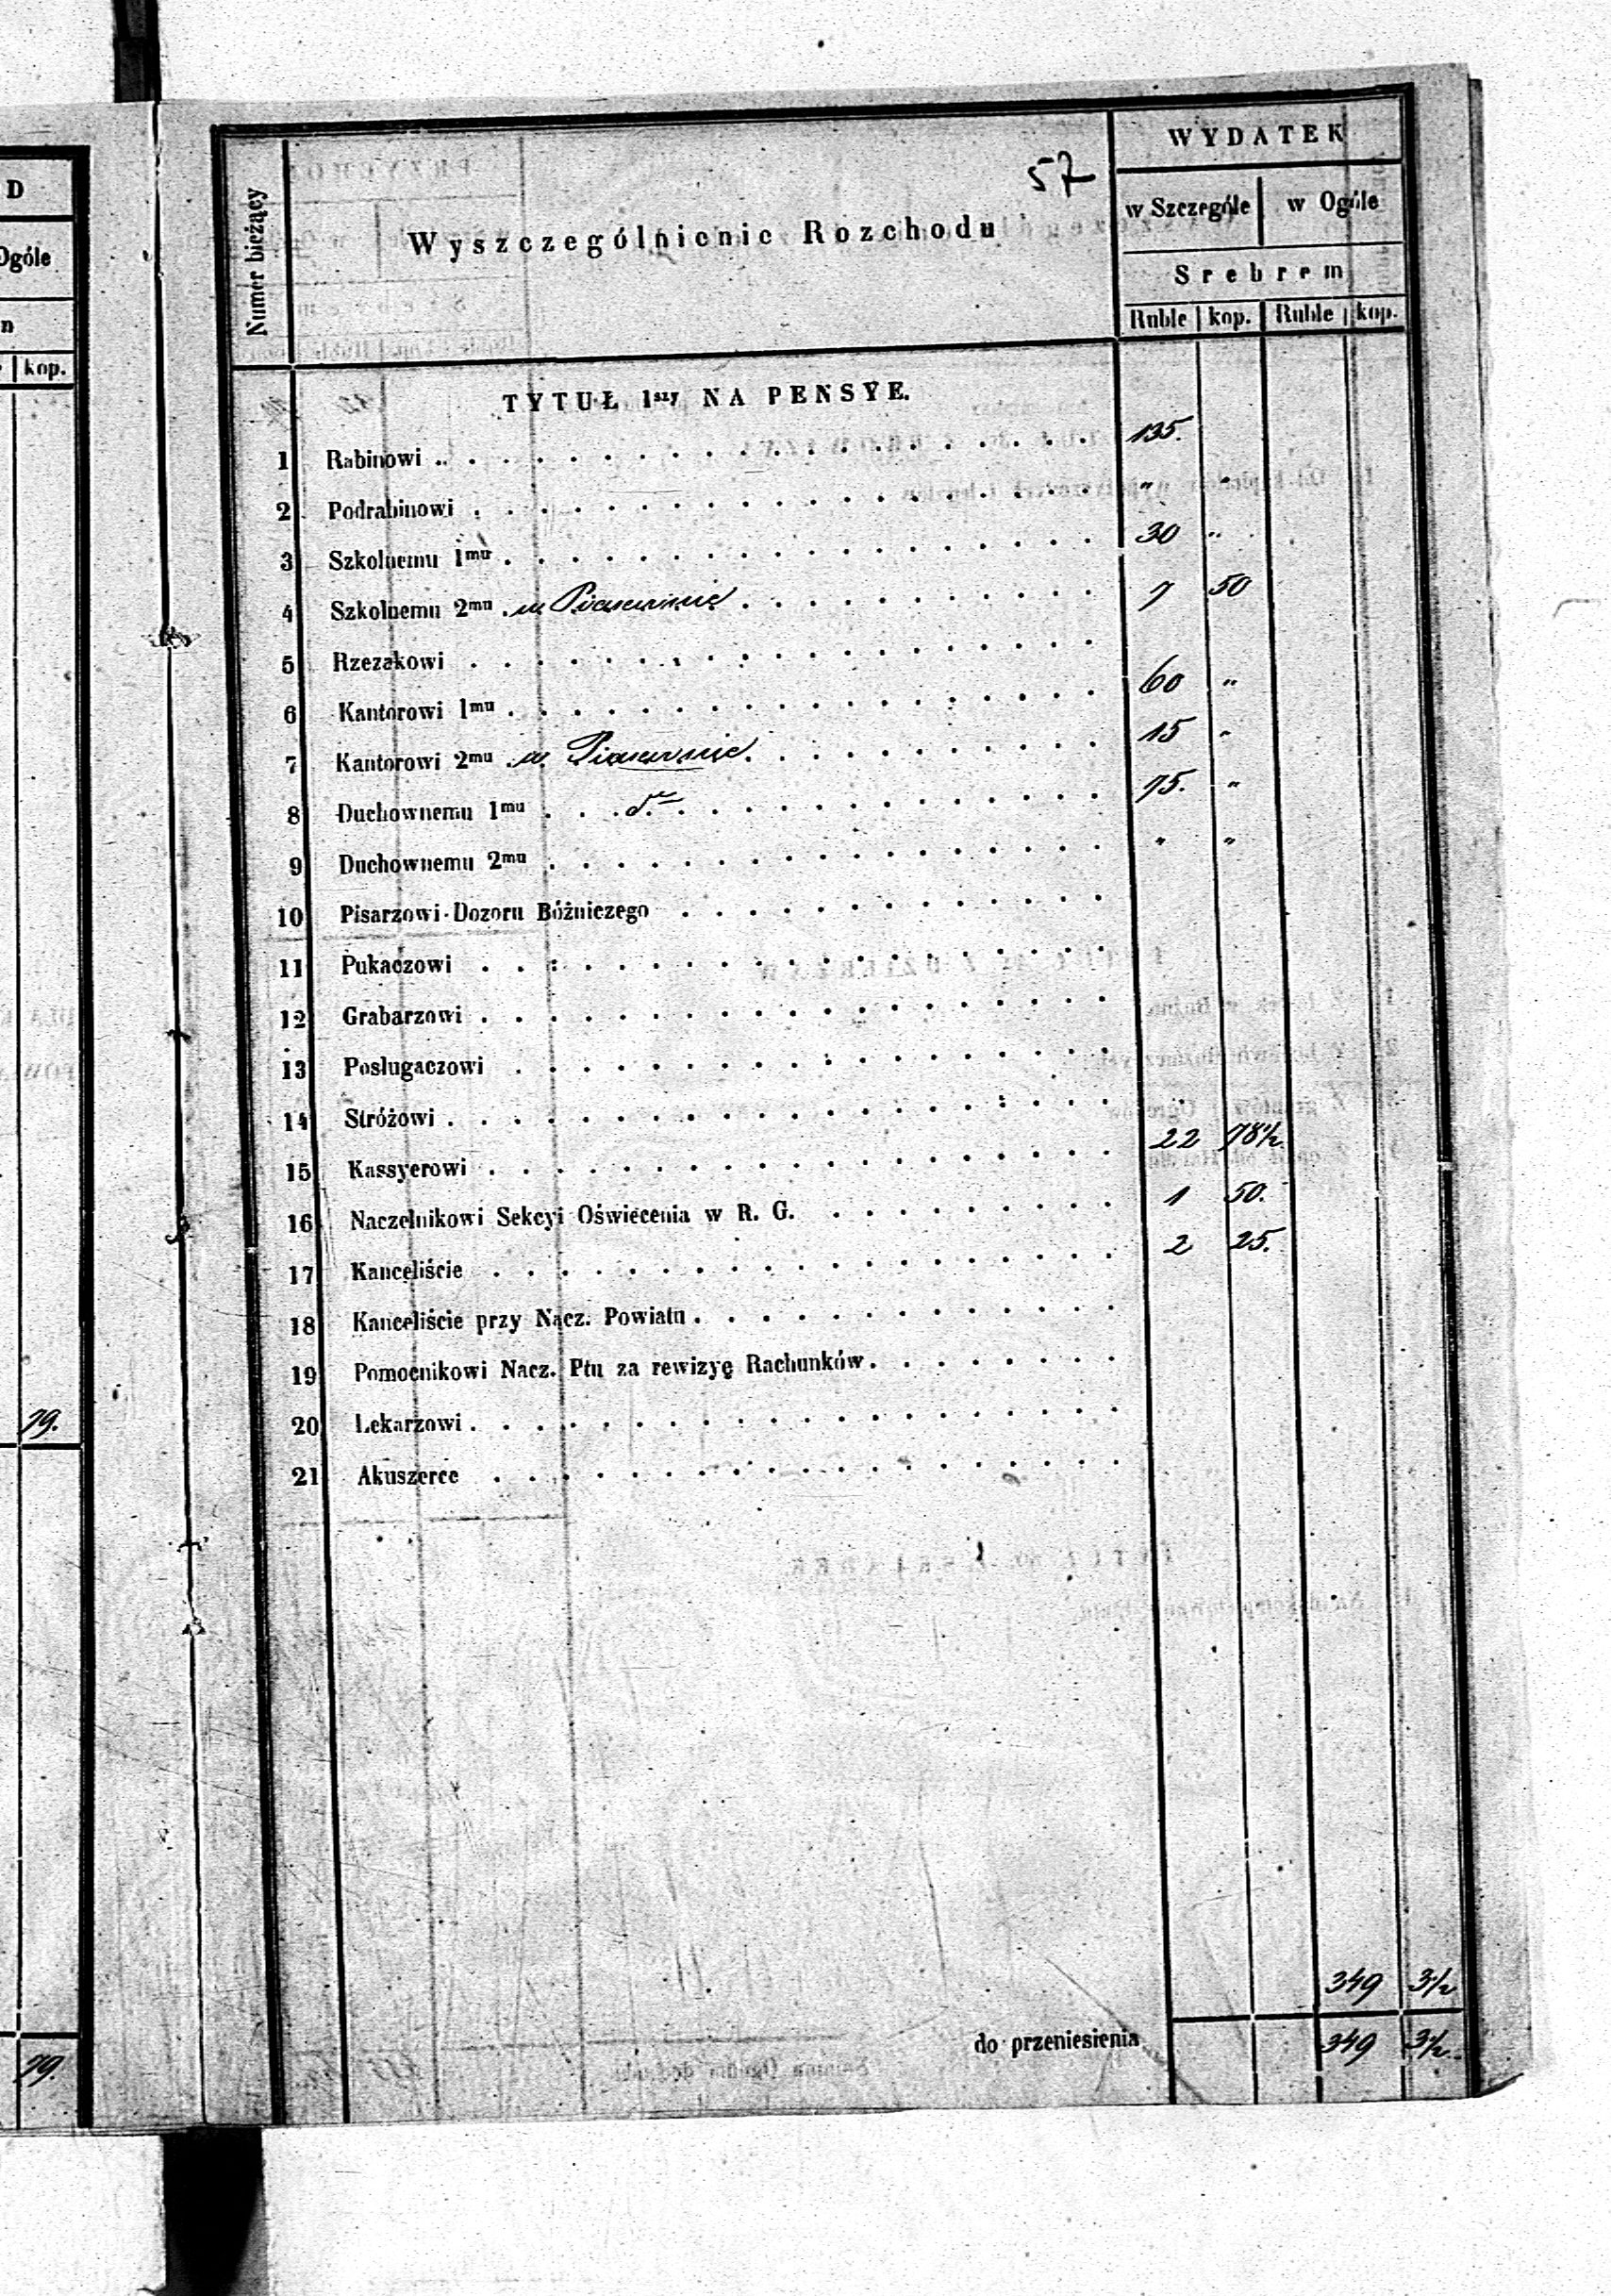 D
Ogóle
n
kop.
79.
79.
57
Numer bieżący
Wyszczególnienie Rozchodu
WYDATEK
w Szczególe w Ogóle
Srebrem
Ruble kop. Ruble kop.
TYTUŁ 1szy NA PENSYE.
1 Rabinowi 135.
2 Podrabinowi " "
3 Szkolnemu 1mu 30 "
4 Szkolnemu 2mu w Piasecznie 7 50
5 Rzezakowi
6 Kantorowi 1mu 60 "
7 Kantorowi 2mu w Piasecznie 15 "
8 Duchownemu 1mu 75. "
9 Duchownemu 2mu " "
10 Pisarzowi Dozoru Bóżniczego
11 Pukaczowi
12 Grabarzowi
13 Posługaczowi
14 Stróżowi
15 Kassyerowi 22 78½
16 Naczelnikowi Sekcyi Oświecenia w R. G. 1 50.
17 Kanceliście 2 25.
18 Kanceliście przy Nacz. Powiatu
19 Pomocnikowi Nacz. Ptu za rewizyę Rachunków
20 Lekarzowi
21 Akuszerce
349 3½
do przeniesienia 349 3½